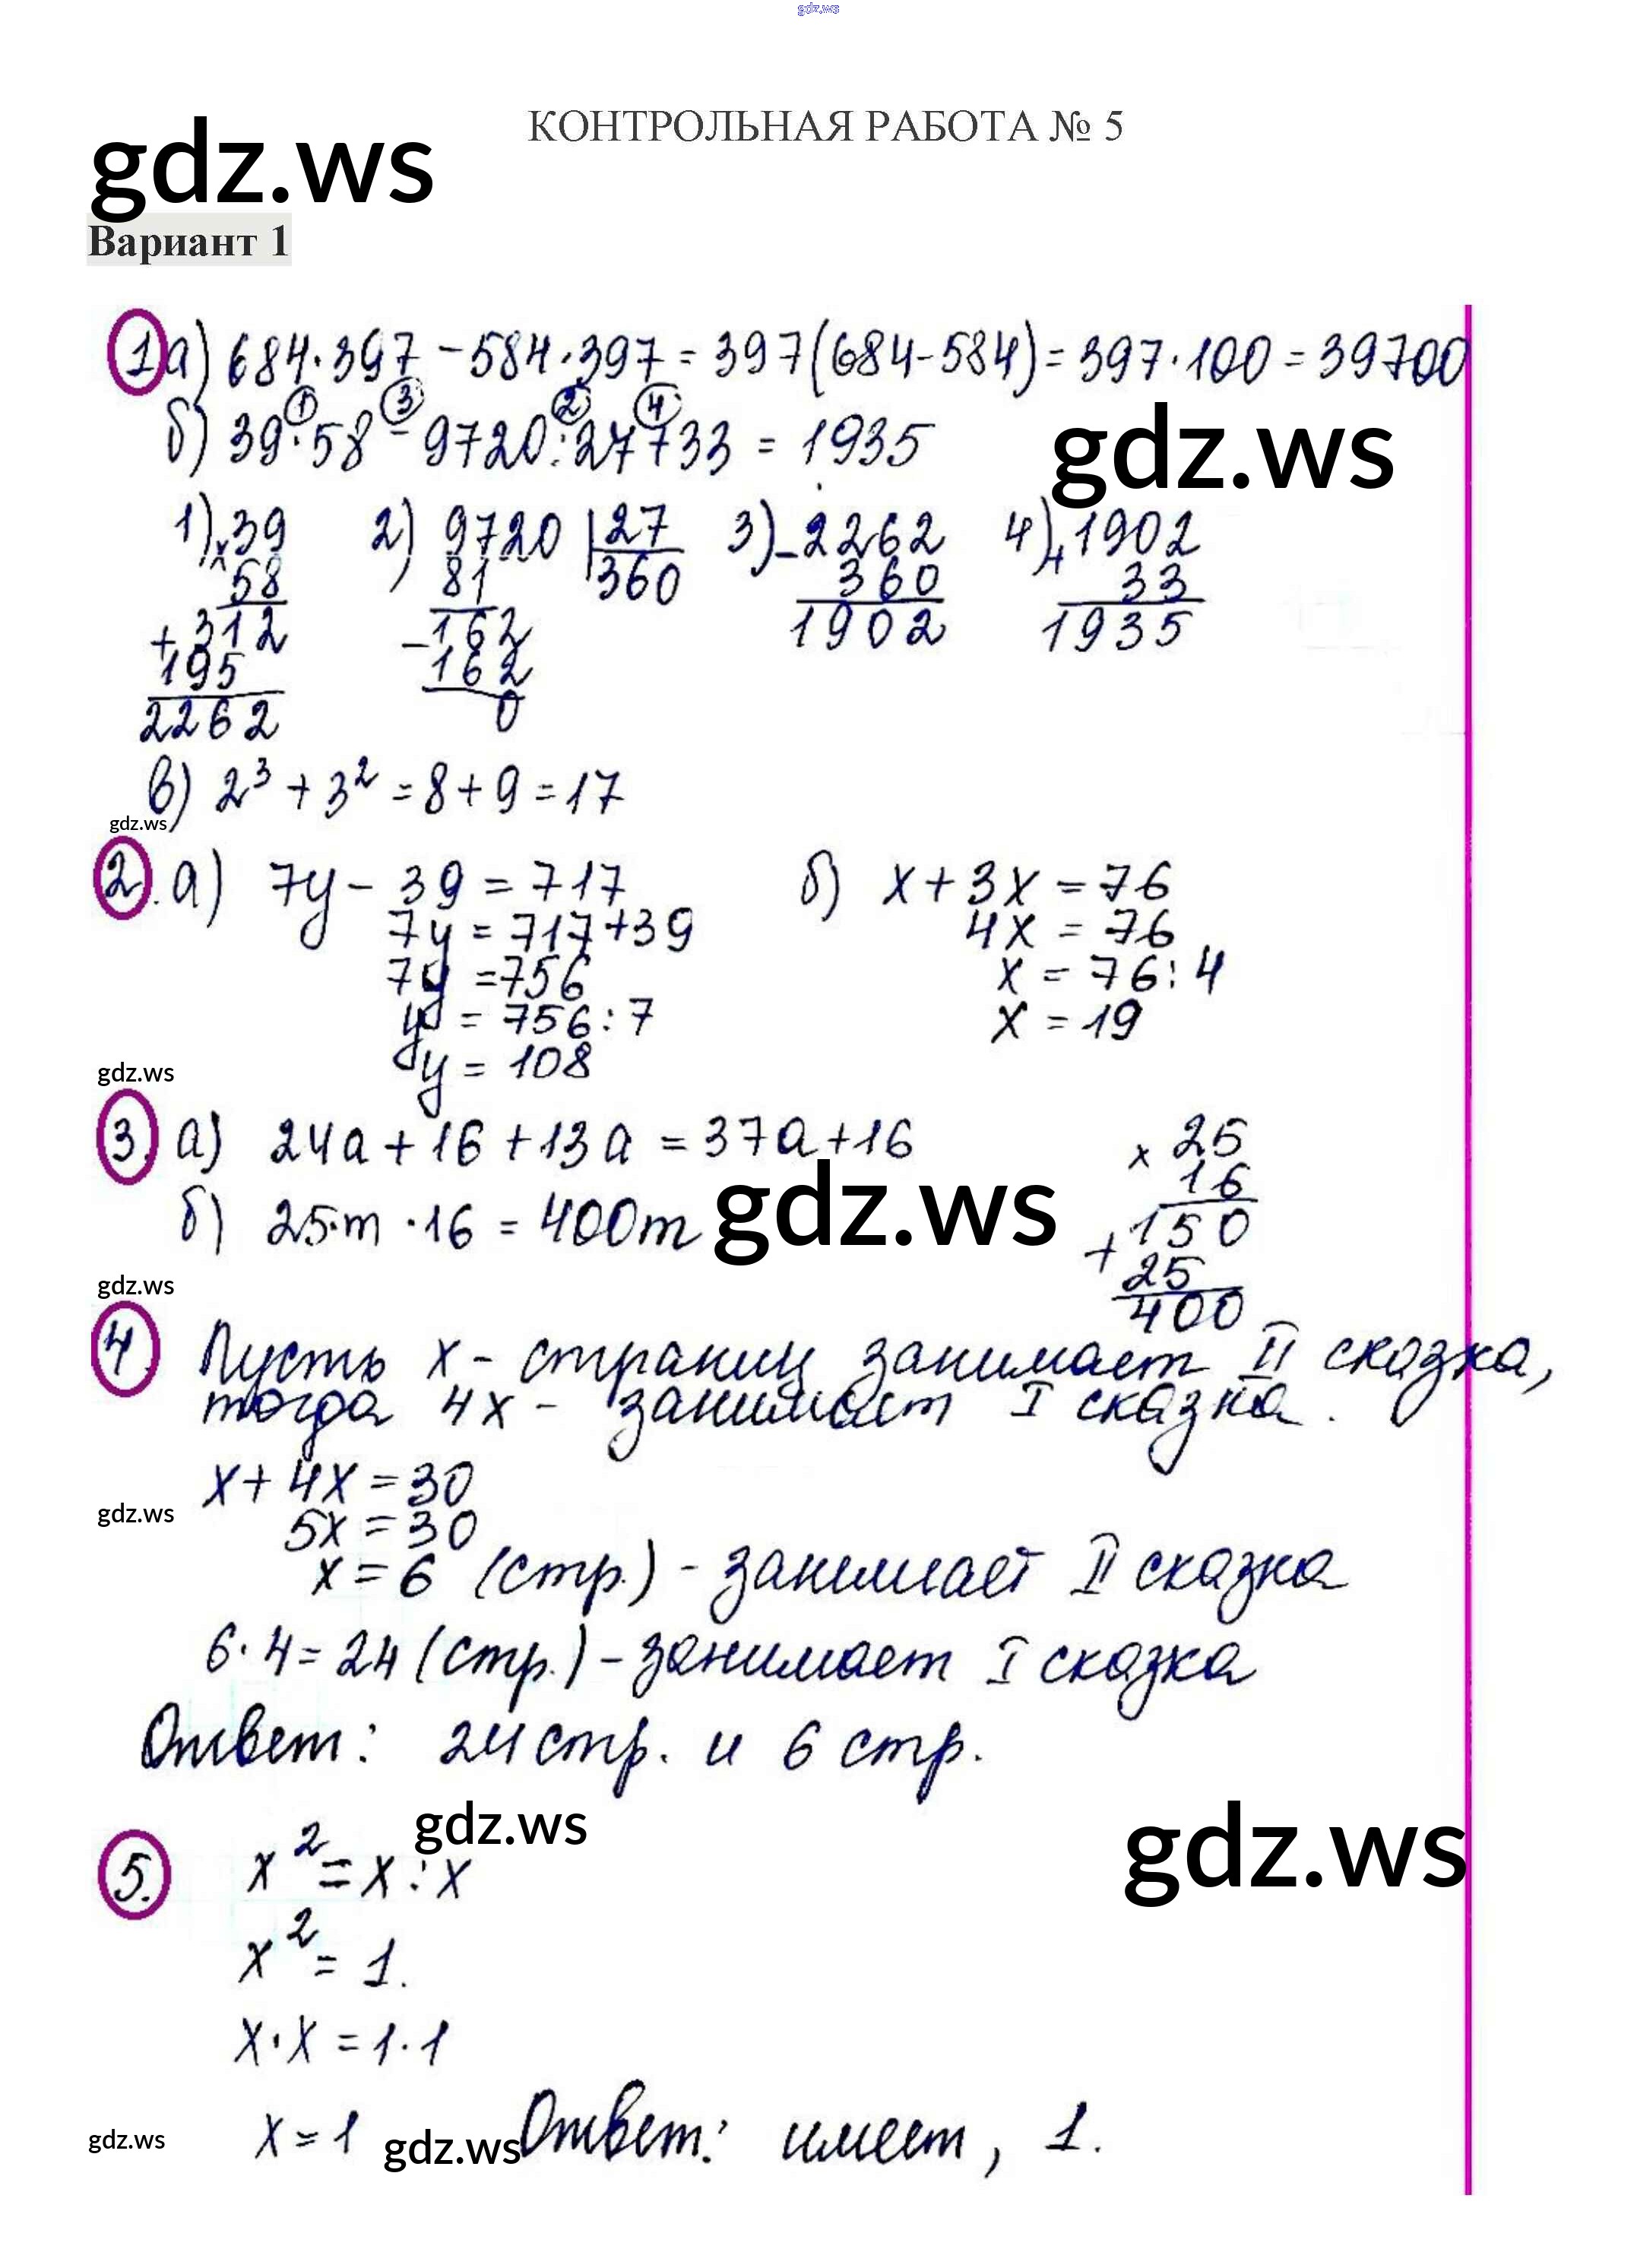 gdz.ws
КОНТРОЛЬНАЯ РАБОТА № 5
gdz.ws
Вариант 1
1 а) 684·397 - 584·397 = 397(684-584) = 397·100 = 39700
1 3 2 4
б) 39·58 - 9720:27+33 = 1935
gdz.ws
1) 39 2) 9720 27 3) - 2262 4) + 1902
× 58 81 360 360 33
+ 312 - 162 1902 1935
195 162
2262 0
в) 2³ + 3² = 8 + 9 = 17
gdz.ws
2. а) 7y - 39 = 717 б) x + 3x = 76
7y = 717+39 4x = 76
7y = 756 x = 76:4
y = 756:7 x = 19
y = 108
gdz.ws
3. а) 24a + 16 + 13a = 37a + 16 × 25
16
б) 25·m·16 = 400m gdz.ws + 150
25
400
gdz.ws
4. Пусть x - страниц занимает II сказка,
тогда 4x - занимает I сказка.
x + 4x = 30
gdz.ws
5x = 30
x = 6 (стр.) - занимает II сказка
6·4 = 24 (стр.) - занимает I сказка
Ответ: 24 стр. и 6 стр.
gdz.ws
gdz.ws
5. x² = x : x
x² = 1.
x·x = 1·1
x = 1 Ответ: имеет, 1.
gdz.ws
gdz.ws